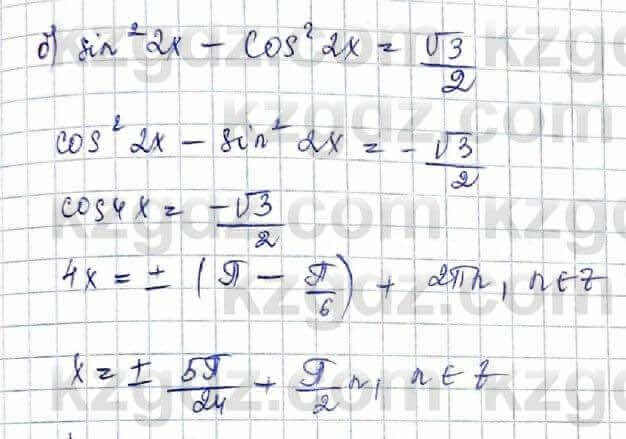 б) sin² 2x − cos² 2x = √3/2
cos² 2x − sin² 2x = −√3/2
cos 4x = −√3/2
4x = ± (π − π/6) + 2πn, n ∈ Z
x = ± 5π/24 + π/2 n, n ∈ Z
kzgdz.com